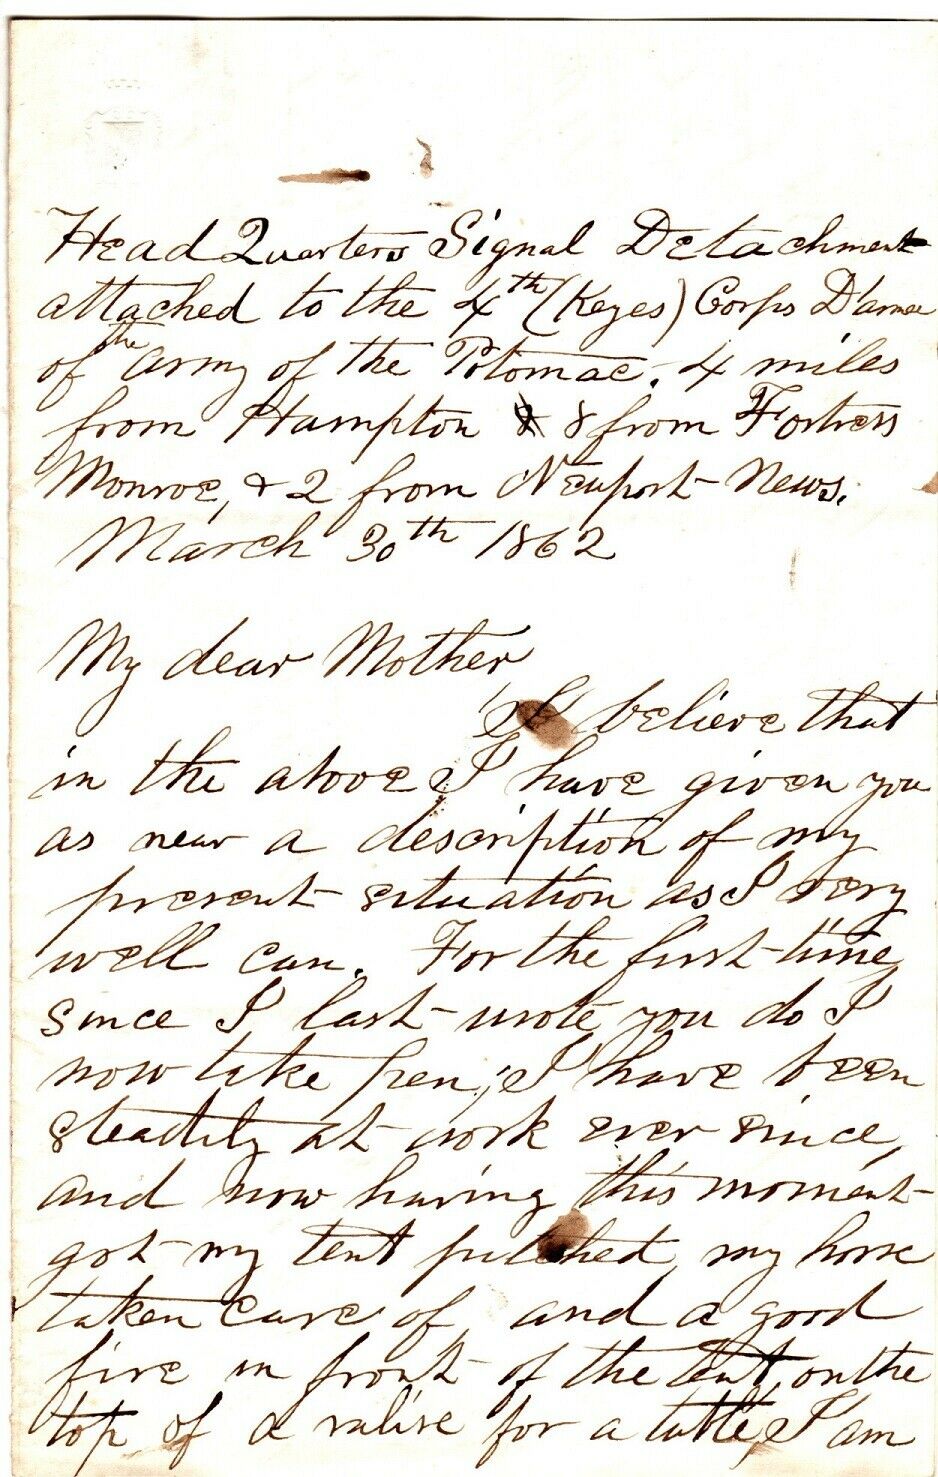 Head Quarters Signal Detachment
attached to the 4th (Keyes) Corps D'armee
of the Army of the Potomac. 4 miles
from Hampton & 8 from Fortress
Monroe, & 2 from Newport-News.
March 30th 1862
My dear Mother
I believe that
in the above I have given you
as near a description of my
present situation as I very
well can. For the first-time
since I last-wrote you do I
now take pen; I have been
steadily at work ever since,
and now having this moment
got my tent pitched, my horse
taken care of and a good
fire in front of the tent, on the
top of a valise for a table, I am